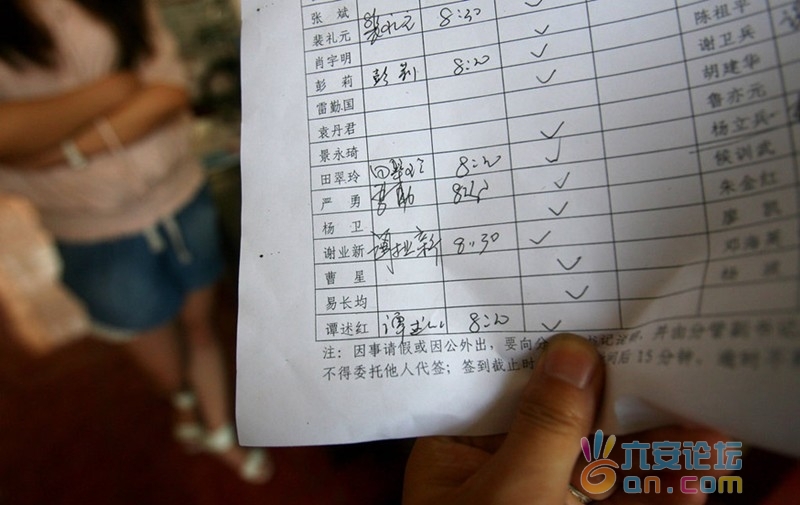 张斌
裴礼元 裴礼元 8:30 ✓ 陈祖平
肖宇明 ✓ 谢卫兵
彭莉 彭莉 8:20 ✓ 胡建华
雷勤国 鲁亦元
袁丹君 ✓ 杨立兵
景永琦 ✓ 候训武
田翠玲 田翠玲 8:20 ✓ 朱金红
严勇 8:20 ✓ 廖凯
杨卫 ✓ 邓海英
谢业新 谢业新 8:30 ✓ 杨
曹星 ✓
易长均 ✓
谭述红 谭述红 8:20 ✓
注：因事请假或因公外出，要向分 记 并由分管副书记
不得委托他人代签；签到截止时 间后15分钟。逾时不
六安论坛
6an.com